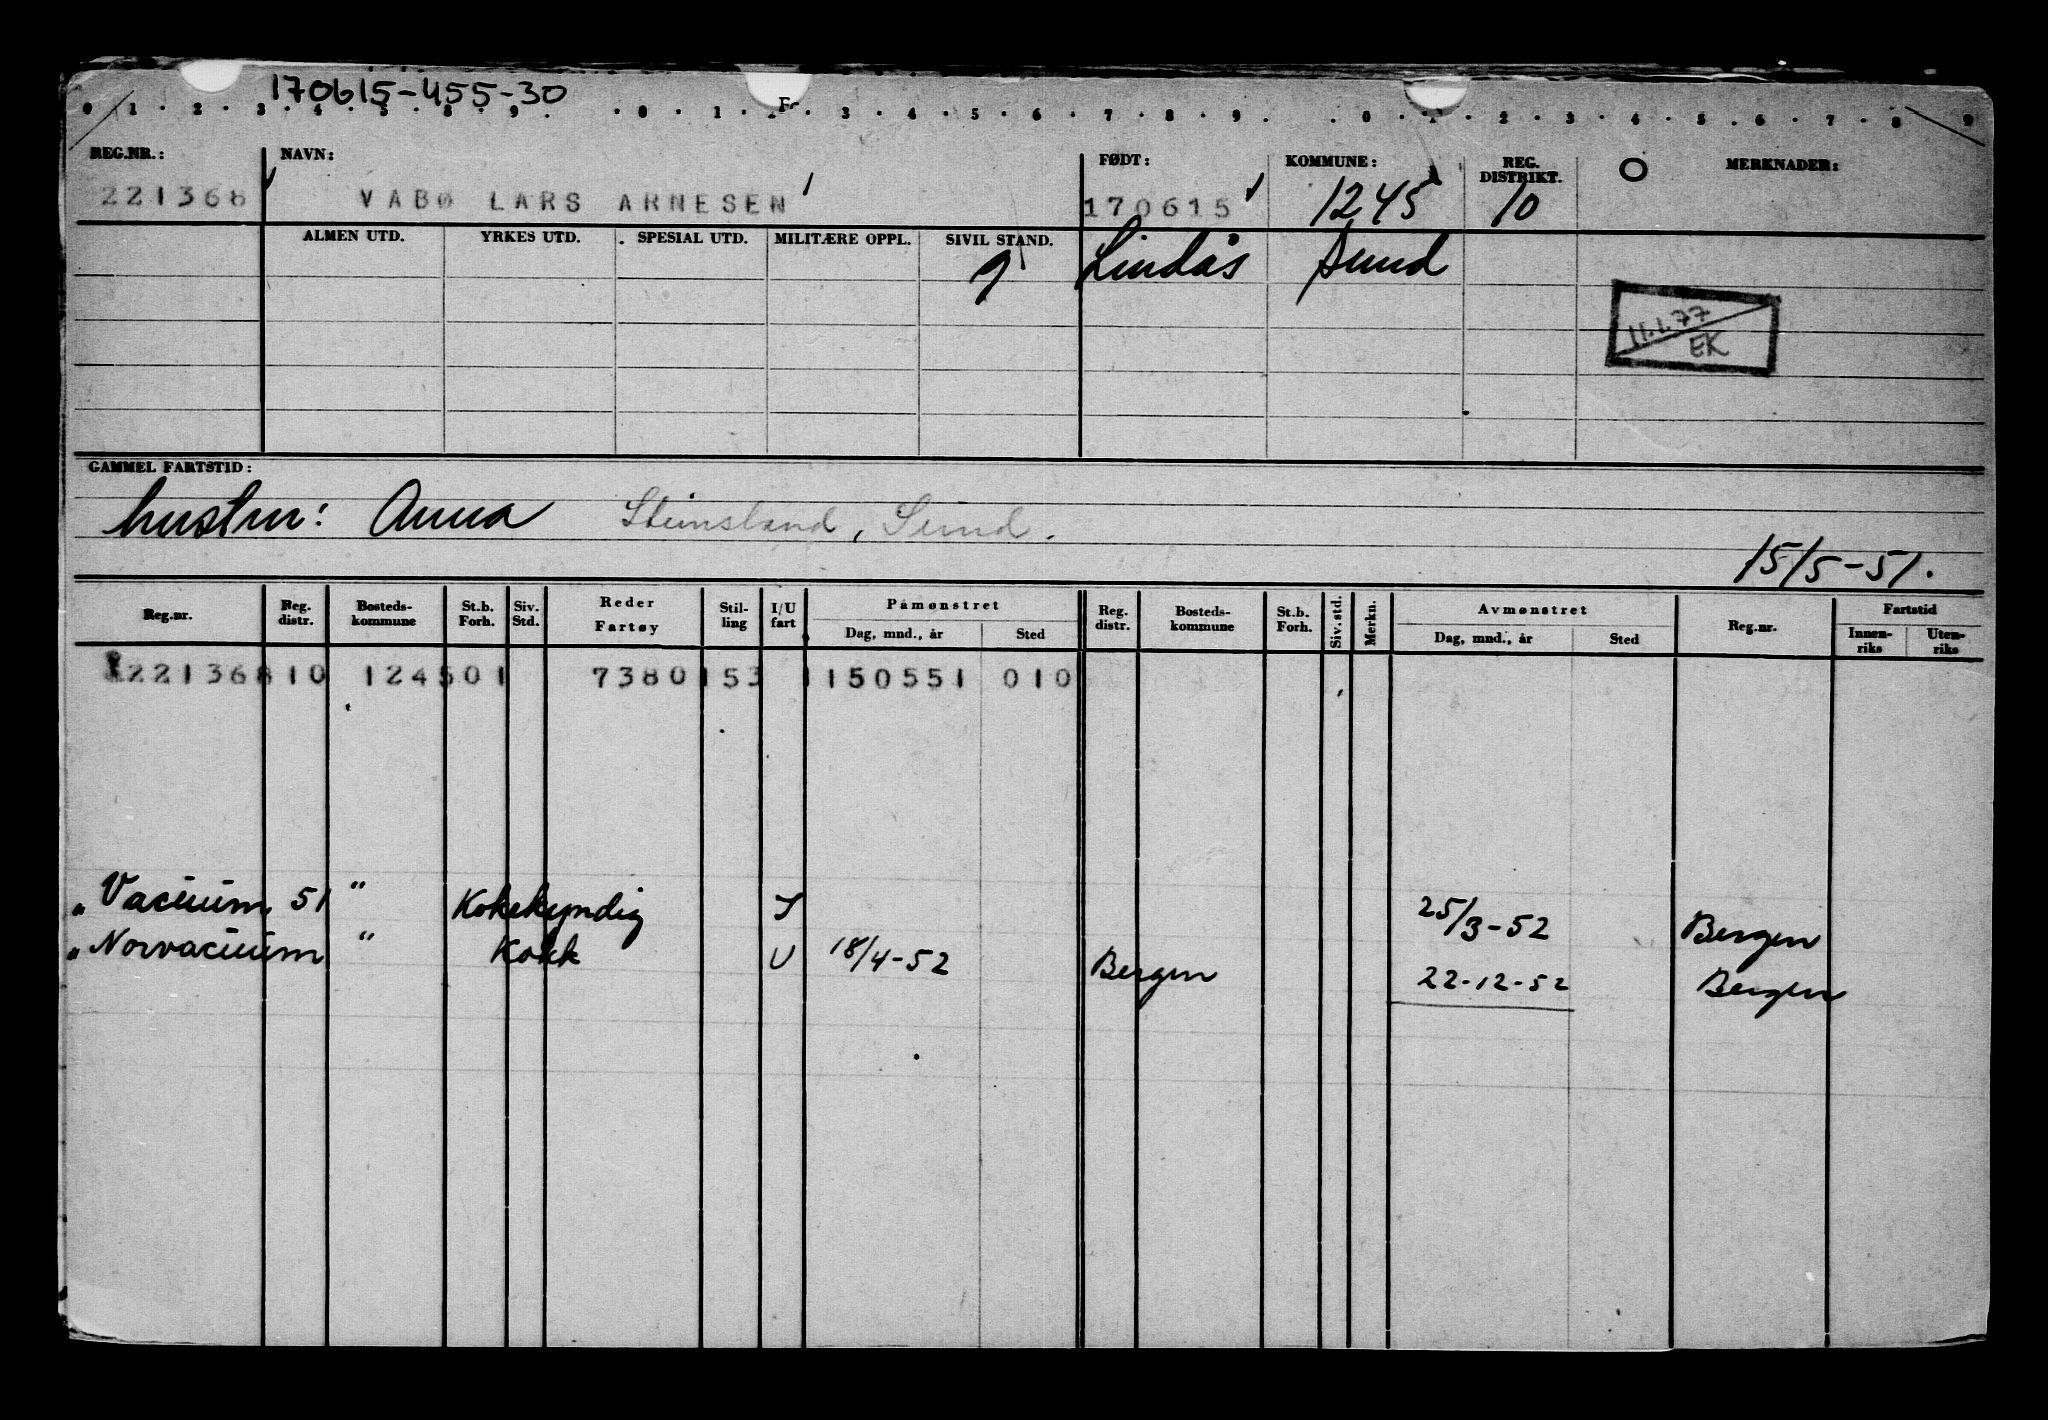 170615-455-30
0 1 . 2 . 3 . 4 . 5 . 8 . 9 . . 0 . 1 . 2 . 3 . 4 . 5 . 6 . 7 . 8 . 9 . . 0 . 1 . 2 . 3 . 4 . 5 . 6 . 7 . 8 9
REG.NR.: NAVN: FØDT: KOMMUNE: REG. DISTRIKT. O MERKNADER:
221368 VABØ LARS ARNESEN 170615 1245 10
ALMEN UTD. YRKES UTD. SPESIAL UTD. MILITÆRE OPPL. SIVIL STAND.
g Lindås Sund
11.1.77
EK
GAMMEL FARTSTID:
hustru: Anna Steinsland, Sund.
15/5-51.
Reg.nr. Reg. distr. Bosteds-kommune St.b. Forh. Siv. Std. Reder Fartøy Stil-ling I/U fart Påmønstret Dag, mnd., år Sted Reg. distr. Bosteds-kommune St.b. Forh. Siv. std. Merkn. Avmønstret Dag, mnd., år Sted Reg.nr. Fartstid Innen-riks Uten-riks
221368 10 1245 01 7380 153 1 150551 010
"Vacuum 51 " Kokekyndig I 25/3-52 Bergen
"Norvacuum " Kokk U 18/4-52 Bergen 22-12-52 Bergen